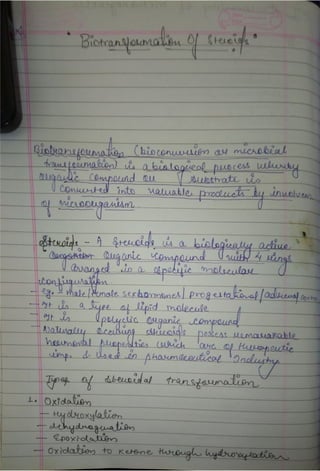 "Biotransformation Of Steroids"
Biotransformation (bioconversion or microbial
transformation) is a biological process whereby
organic compound or substrate is
converted into valuable products by involvement
of microorganism
Steroids - A steroids is a biologically active
organic compound with 4 rings
arranged in a specific molecular
configuration
Eg:- male/female sex hormones/progestational/adrenal
- It is a type of lipid molecule
- It is polyclic organic compound
- Naturally occuring steroids posess remarkable
hormonal properties which are of therapeutic
imp. & used in pharmaceutical Industry
Types of steroidal transformation
1. Oxidation
- Hydroxylation
- dehydrogenation
- Epoxidation
- Oxidation to ketone through hydroxylation